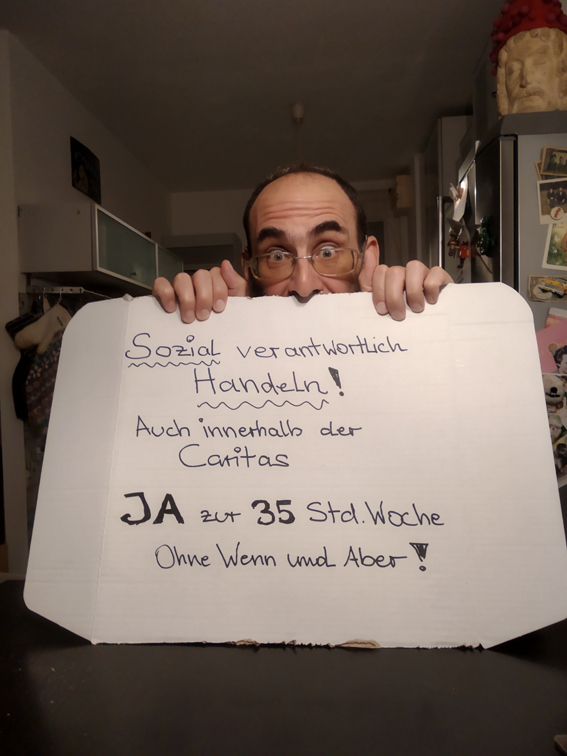 Sozial verantwortlich
Handeln!
Auch innerhalb der
Caritas
JA zur 35 Std. Woche
Ohne Wenn und Aber!